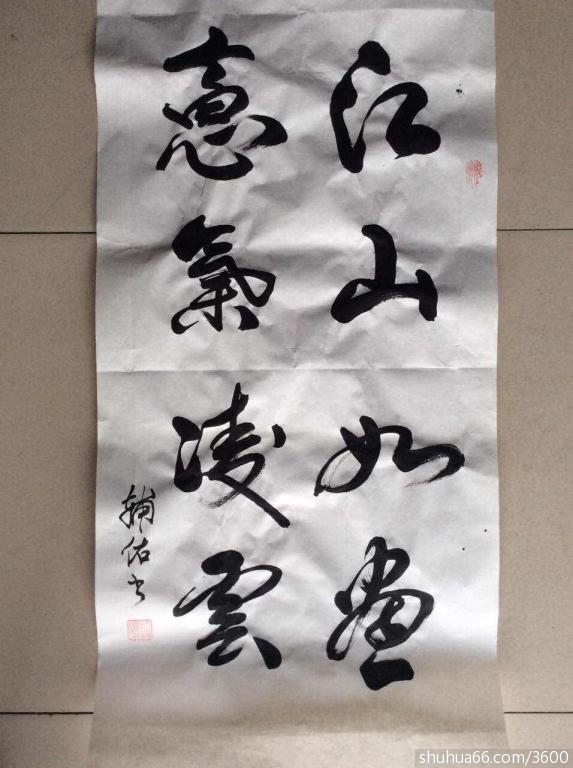 江山如畫
意氣凌雲
輔佑书
shuhua66.com/3600